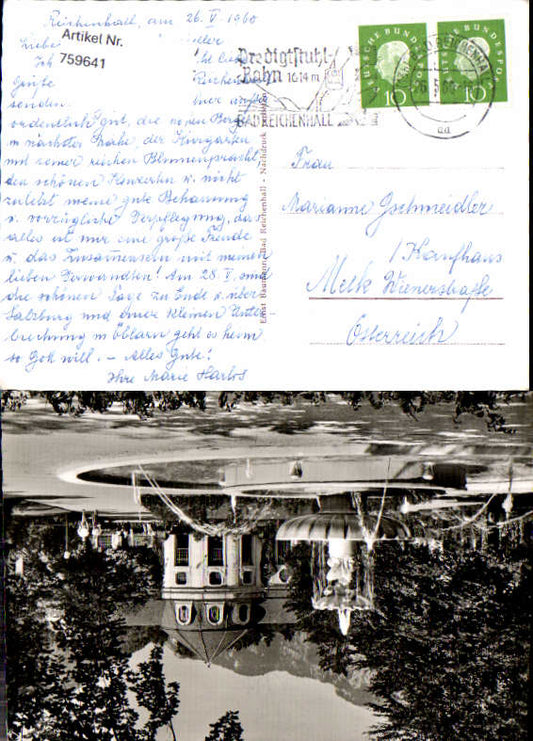 Reichenhall, am 26. V. 1960
Liebe
Artikel Nr.
759641
Grüße Reichen
senden.
ordentlich gut, die nahen Berge
in nächster Nähe, der Kurgarten
mit seiner reichen Blumenpracht
den schönen Konzerten u. nicht
zuletzt meine gute Behausung
u. vorzügliche Verpflegung, das
alles ist mir eine große Freude
u. das Zusammensein mit meinen
lieben Verwandten! Am 28. V. sind
die schönen Tage zu Ende u. über
Salzburg und einer kleinen Unter-
brechung in Öblarn geht es heim
so Gott will. – Alles Gute!
Ihre Marie Harlos
Predigtstuhl-
Bahn 1614 m
BAD REICHENHALL
DEUTSCHE BUNDESPOST
10
10
Ernst Baumann, Bad Reichenhall - Nachdruck verboten
Frau
Marianne Gschmeidler
/ Kaufhaus
Melk Wienerstraße
Österreich